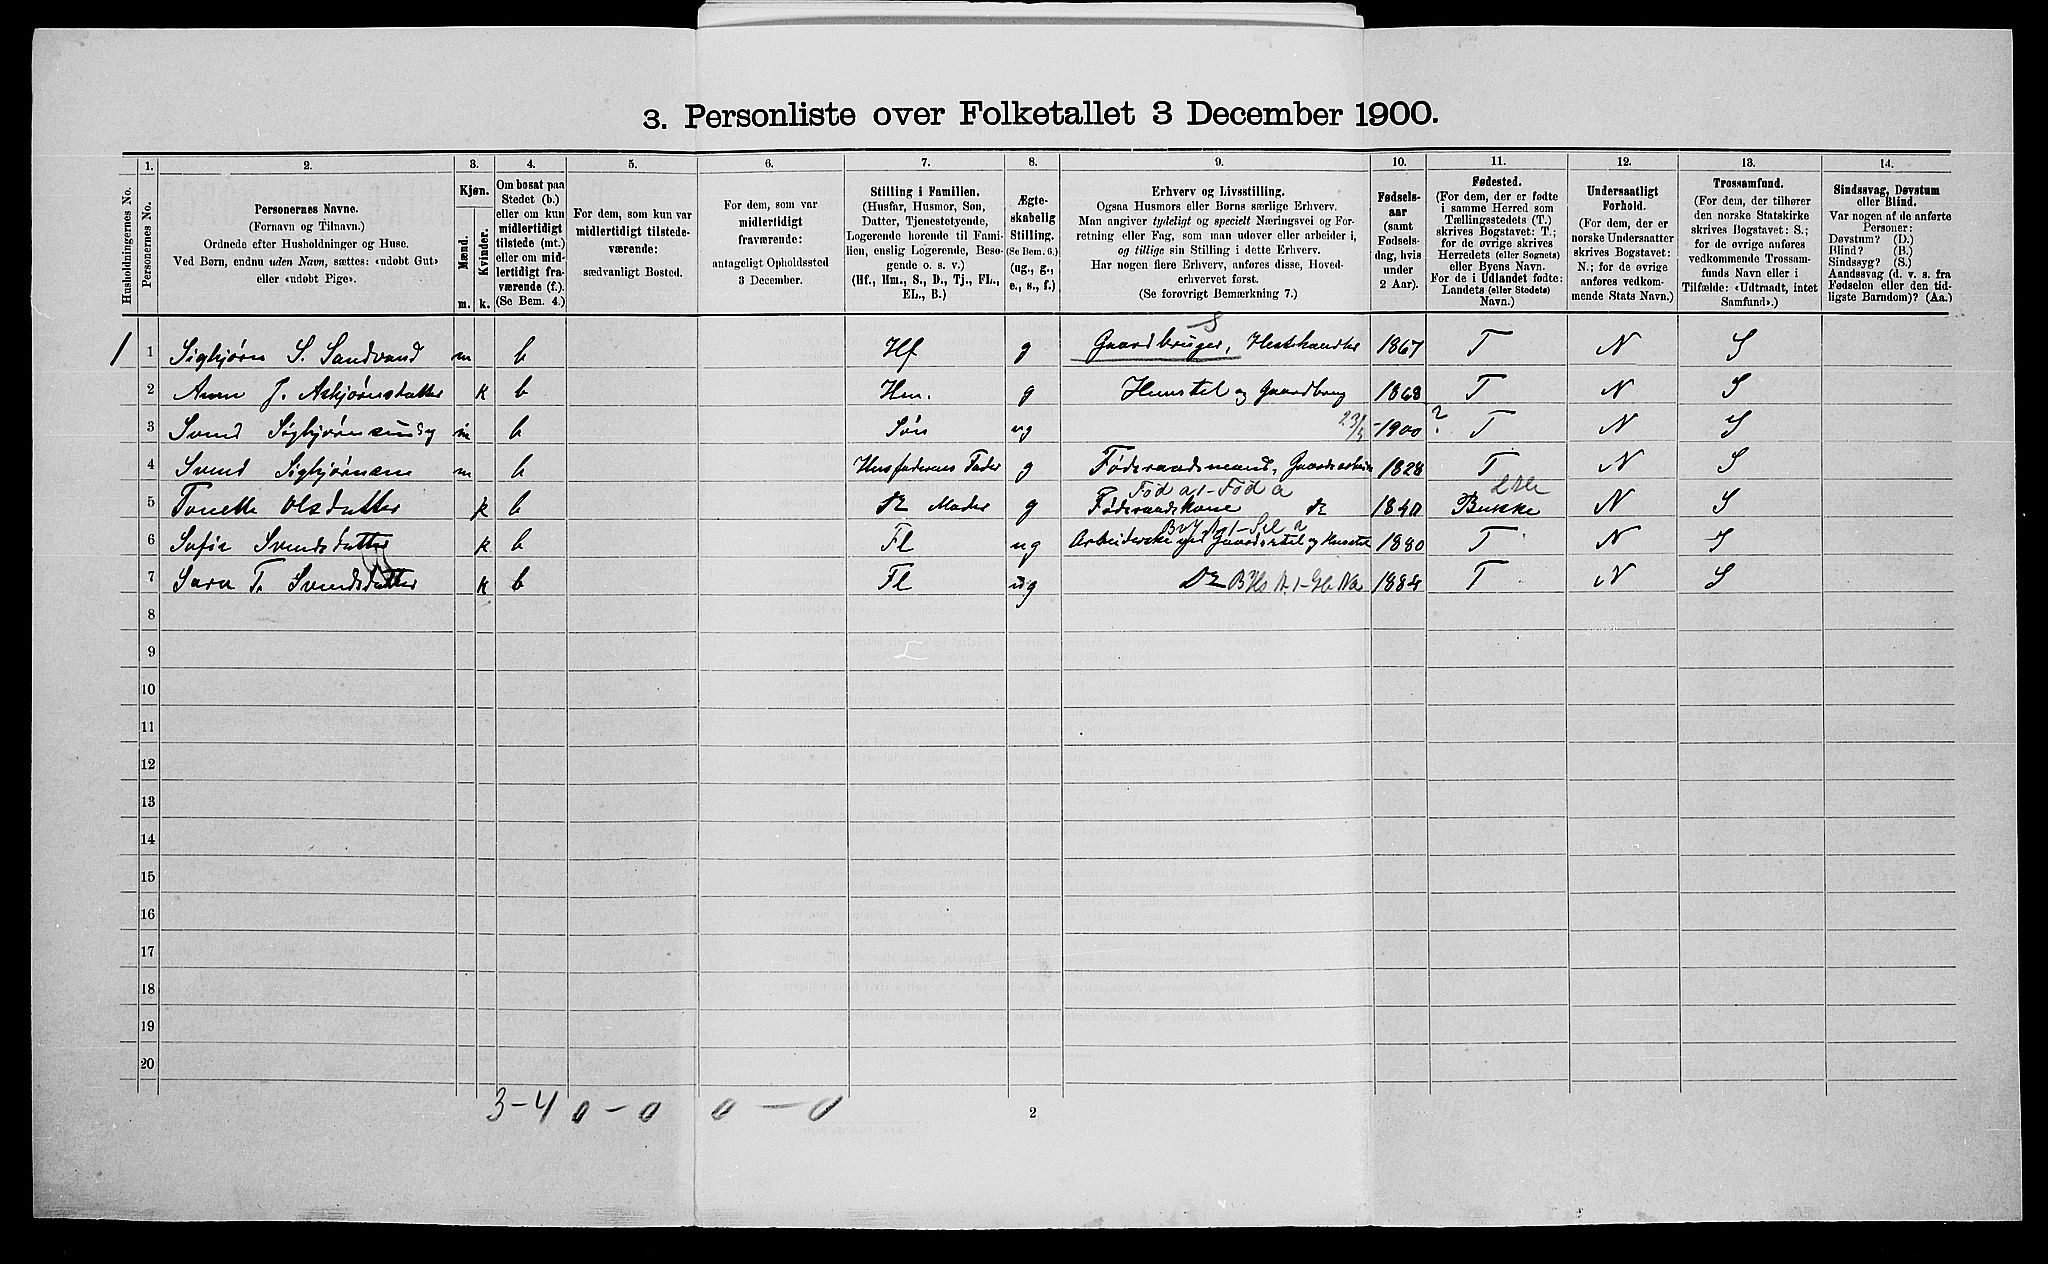 3. Personliste over Folketallet 3 December 1900.
Husholdningernes No.
1.
Personernes No.
2.
Personernes Navne.
(Fornavn og Tilnavn.)
Ordnede efter Husholdninger og Huse.
Ved Børn, endnu uden Navn, sættes: «udøbt Gut»
eller «udøbt Pige».
3.
Kjøn.
Mænd.
Kvinder.
m.
k.
4.
Om bosat paa
Stedet (b.)
eller om kun
midlertidigt
tilstede (mt.)
eller om mid-
lertidigt fra-
værende (f.).
(Se Bem. 4.)
5.
For dem, som kun var
midlertidigt tilstede-
værende:
sædvanligt Bosted.
6.
For dem, som var
midlertidigt
fraværende:
antageligt Opholdssted
3 December.
7.
Stilling i Familien.
(Husfar, Husmor, Søn,
Datter, Tjenestetyende,
Logerende hørende til Fami-
lien, enslig Logerende, Besø-
gende o. s. v.)
(Hf., Hm., S., D., Tj., FL.,
EL., B.)
8.
Ægte-
skabelig
Stilling.
(Se Bem. 6.)
(ug., g.,
e., s., f.)
9.
Erhverv og Livsstilling.
Ogsaa Husmors eller Børns særlige Erhverv.
Man angiver tydeligt og specielt Næringsvei og For-
retning eller Fag, som man udøver eller arbeider i,
og tillige sin Stilling i dette Erhverv.
Har nogen flere Erhverv, anføres disse, Hoved-
erhvervet først.
(Se forøvrigt Bemærkning 7.)
10.
Fødsels-
aar
(samt
Fødsels-
dag, hvis
under
2 Aar).
11.
Fødested.
(For dem, der er fødte
i samme Herred som
Tællingsstedets (T.)
skrives Bogstavet: T.;
for de øvrige skrives
Herredets (eller Sognets)
eller Byens Navn.
For de i Udlandet fødte:
Landets (eller Stedets)
Navn.)
12.
Undersaatligt
Forhold.
(For dem, der er
norske Undersaatter
skrives Bogstavet:
N.; for de øvrige
anføres vedkom-
mende Stats Navn.)
13.
Trossamfund.
(For dem, der tilhører
den norske Statskirke
skrives Bogstavet: S.;
for de øvrige anføres
vedkommende Trossam-
funds Navn eller i
Tilfælde: «Udtraadt, intet
Samfund».)
14.
Sindssvag, Døvstum
eller Blind.
Var nogen af de anførte
Personer:
Døvstum? (D.)
Blind? (B.)
Sindssyg? (S.)
Aandssvag (d. v. s. fra
Fødselen eller den tid-
ligste Barndom)? (Aa.)
S
1 1 Sigbjørn S. Sandvand m b Hf g Gaardbruger, Hesthandler 1867 T N S
2 Anne J. Asbjørnsdatter k b Hm. g Husstel og Gaardbrug 1868 T N S
3 Svend Sigbjørnsen m b Søn ug 23/5 - 1900 ? T N S
4 Svend Sigbjørnsen m b Husfaderens Fader g Føderaadsmand, Gaardsarbeide 1828 T N S
Fød a 1 - Fød a
5 Tonette Olsdatter k b Do Moder g Føderaadskone do 1840 Bakke N S
6 Sofie Svendsdatter k b Fl ug Arbeiderske ved Gaardsstel og Husstel 1880 T N S
7 Sara T. Svendsdatter k b Fl ug Do 1884 T N S
8
9
10
11
12
13
14
15
16
17
18
19
20
3-4 0-0 0-0
2